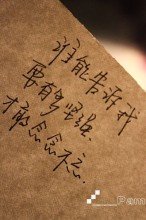 谁能告诉我
要有多坚强
才敢念念不忘
Pam